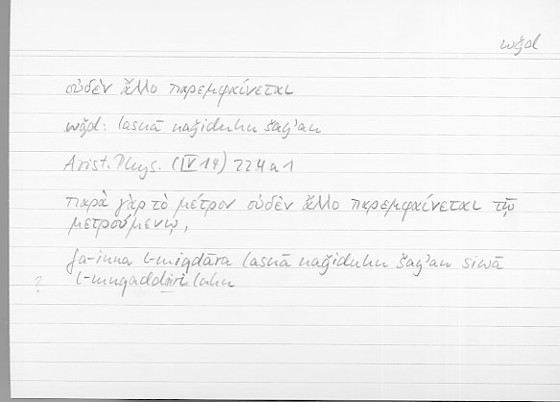 wǧd
οὐδὲν ἄλλο παρεμφαίνεται
wǧd: lasnā naǧiduhu šay'an
Arist. Phys. (IV 14) 224 a 1
παρὰ γὰρ τὸ μέτρον οὐδὲν ἄλλο παρεμφαίνεται τῷ
μετρουμένῳ,
fa-inna l-miqdāra lasnā naǧiduhu šay'an siwā
? l-muqaddiri lahu